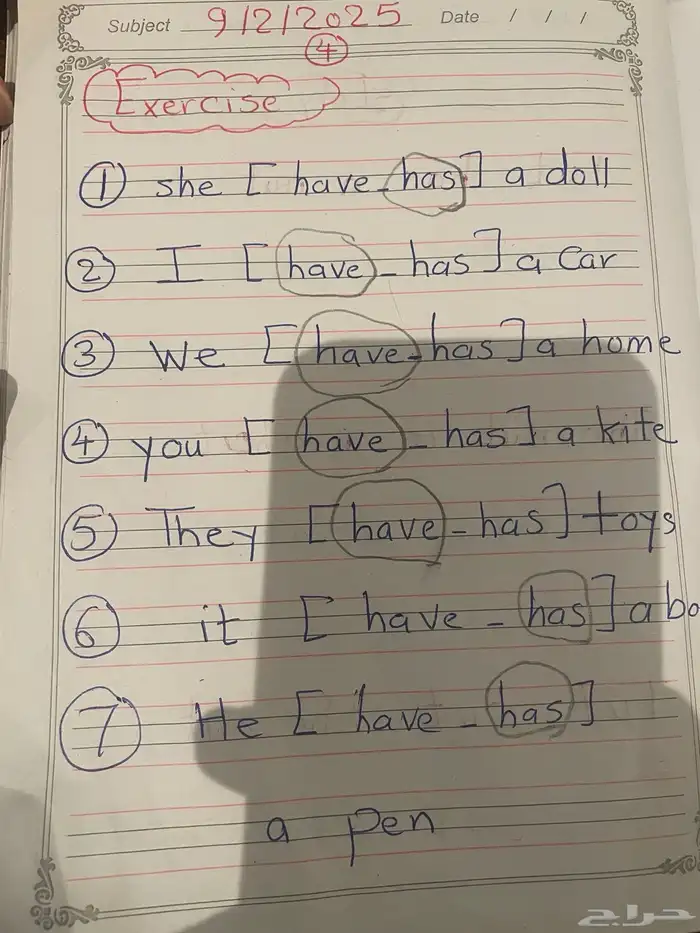 Subject 9/2/2025 Date / / /
4
Exercise
1 she [have - has] a doll
2 I [have - has] a car
3 We [have - has] a home
4 you [have - has] a kite
5 They [have - has] toys
6 it [have - has] a bo
7 He [have - has]
a pen
حراج